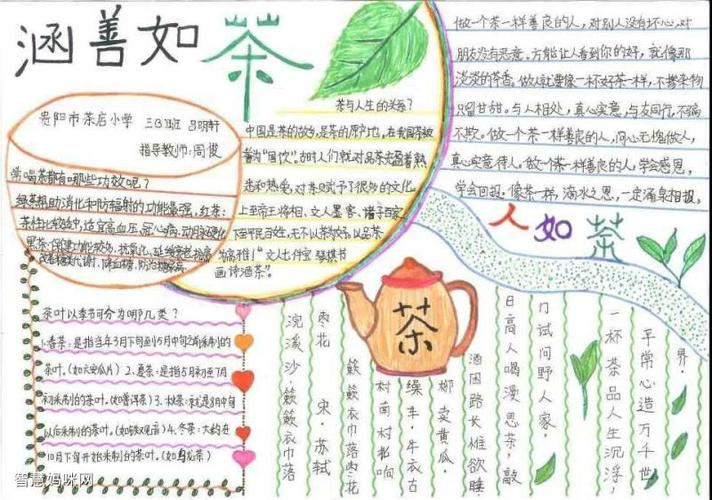 涵善如茶
贵阳市茶店小学 三(3)班 吕明轩
指导教师:周俊
常喝茶都有哪些功效呢?
绿茶帮助消化和防辐射的功能最强,红茶:
茶性比较适中,适宜高血压、冠心病、动脉硬化
黑茶:保健功能较多,抗氧化、延缓衰老
改善糖类代谢、降血糖、防治糖尿病
茶与人生的关每?
中国是茶的故乡,是茶的原产地,在我国茶被
誉为“国饮”.古时人们就对品茶充盈着熟
志和热爱,对茶赋予了很多的文化
上至帝王将相、文人墨客、诸子百家
下至平民百姓,无不以茶为好,以品茶
为高雅!“文人七件宝 琴棋书
画诗酒茶”。
做一个茶一样善良的人,对别人没有坏心,对
朋友没有恶意。方能让人看到你的好,就像那
淡淡的茶香。做人就要像一杯好茶一样,不掺杂物
只留甘甜。与人相处,真心实意,与友同行,不骗
不欺。做一个茶一样善良的人,问心无愧做人,
真心实意待人。做一个茶一样善良的人,学会感恩,
学会回报。像茶一样,滴水之恩,一定涌泉相报。
人如茶
茶叶以季节可分为哪几类?
1、春茶:是指当年3月下旬到5月中旬之前采制的
茶叶。(如六安瓜片)2、夏茶:是指5月初至7月
初采制的茶叶。(如普洱茶)3、秋茶:就是8月中旬
以后采制的茶叶。(如铁观音)4、冬茶:大约在
10月下旬开始采制的茶叶。(如乌龙茶)
茶
浣溪沙·簌簌衣巾落
枣花 宋·苏轼
簌簌衣巾落枣花
村南村北响
缲车·牛衣古
柳卖黄瓜·
酒困路长惟欲睡
日高人喝漫思茶,敲
门试问野人家·
一杯茶品人生沉浮,
平常心造万千世
界
智慧妈咪网